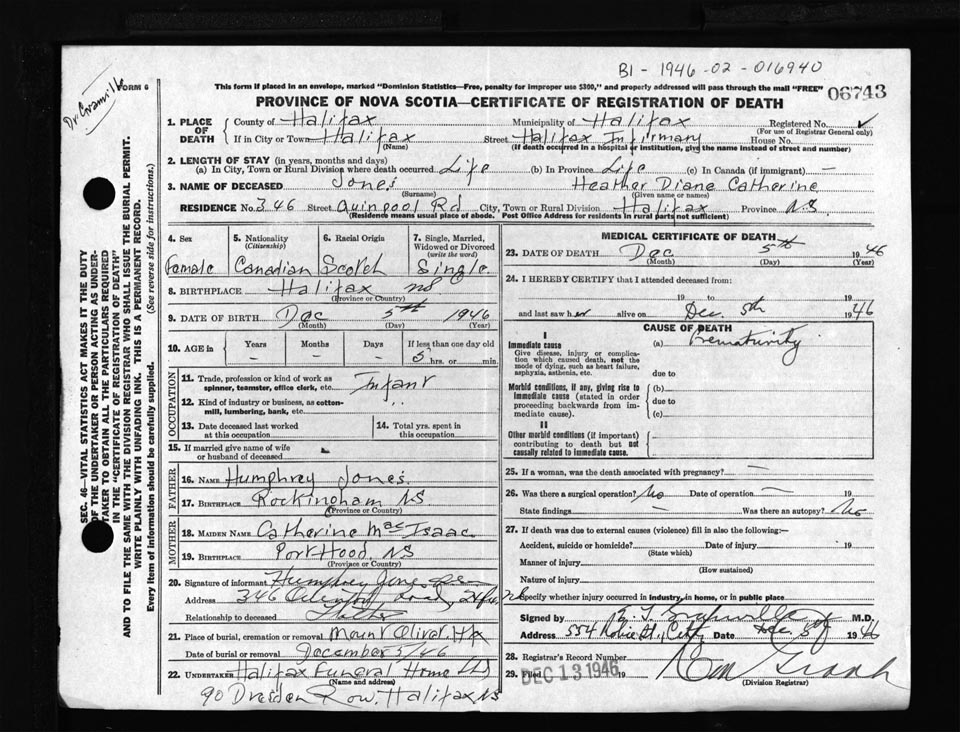 B1 - 1946 - 02 - 016940
FORM 6
This form if placed in an envelope, marked "Dominion Statistics—Free, penalty for improper use $300," and properly addressed will pass through the mail "FREE"
06743
PROVINCE OF NOVA SCOTIA—CERTIFICATE OF REGISTRATION OF DEATH
1. PLACE OF DEATH
County of Halifax Municipality of Halifax Registered No.
(For use of Registrar General only)
If in City or Town Halifax Street Halifax Infirmary House No.
(Name) (If death occurred in a hospital or institution, give the name instead of street and number)
2. LENGTH OF STAY (in years, months and days)
(a) In City, Town or Rural Division where death occurred Life (b) In Province Life (c) In Canada (if immigrant) —
3. NAME OF DECEASED Jones Heather Diane Catherine
(Surname) (Given name or names)
RESIDENCE No. 346 Street Quinpool Rd City, Town or Rural Division Halifax Province NS.
(Residence means usual place of abode. Post Office Address for residents in rural parts not sufficient)
4. Sex
Female
5. Nationality (Citizenship)
Canadian
6. Racial Origin
Scotch
7. Single, Married, Widowed or Divorced (write the word)
Single
8. BIRTHPLACE Halifax NS
(Province or Country)
9. DATE OF BIRTH Dec 5th 1946
(Month) (Day) (Year)
10. AGE in Years Months Days If less than one day old
— — — 5 hrs. or min.
OCCUPATION
11. Trade, profession or kind of work as spinner, teamster, office clerk, etc. Infant
12. Kind of industry or business, as cotton-mill, lumbering, bank, etc.
13. Date deceased last worked at this occupation
14. Total yrs. spent in this occupation
15. If married give name of wife or husband of deceased
FATHER
16. NAME Humphrey Jones
17. BIRTHPLACE Rockingham NS
(Province or Country)
MOTHER
18. MAIDEN NAME Catherine MacIsaac
19. BIRTHPLACE Port Hood NS
(Province or Country)
20. Signature of informant Humphrey Jones
Address 346
Relationship to deceased Father
21. Place of burial, cremation or removal Mount Olivet, Hfx
Date of burial or removal December 5/46
22. UNDERTAKER Halifax Funeral Home Ltd
(Name and address)
90 Dresden Row, Halifax NS
MEDICAL CERTIFICATE OF DEATH
23. DATE OF DEATH Dec 5th 1946
(Month) (Day) (Year)
24. I HEREBY CERTIFY that I attended deceased from:
19 to 19
and last saw her alive on Dec. 5th 1946
CAUSE OF DEATH
I
Immediate cause (a) Prematurity
Give disease, injury or complication which caused death, not the mode of dying, such as heart failure, asphyxia, asthenia, etc.
due to
Morbid conditions, if any, giving rise to immediate cause (stated in order proceeding backwards from immediate cause).
(b)
due to
(c)
II
Other morbid conditions (if important) contributing to death but not causally related to immediate cause.
25. If a woman, was the death associated with pregnancy? —
26. Was there a surgical operation? No Date of operation — 19
State findings — Was there an autopsy? No
27. If death was due to external causes (violence) fill in also the following:-
Accident, suicide or homicide? Date of injury 19
(State which)
Manner of injury
(How sustained)
Nature of injury
Specify whether injury occurred in industry, in home, or in public place
Signed by M.D.
Address 554 City Date Dec 5th 1946
28. Registrar's Record Number
29. Filed DEC 13 1946
(Division Registrar)
SEC. 46—VITAL STATISTICS ACT MAKES IT THE DUTY
OF THE UNDERTAKER OR PERSON ACTING AS UNDER-
TAKER TO OBTAIN ALL THE PARTICULARS REQUIRED
IN THE "CERTIFICATE OF REGISTRATION OF DEATH"
AND TO FILE THE SAME WITH THE DIVISION REGISTRAR WHO SHALL ISSUE THE BURIAL PERMIT.
WRITE PLAINLY WITH UNFADING INK. THIS IS A PERMANENT RECORD.
Every item of information should be carefully supplied. (See reverse side for instructions.)